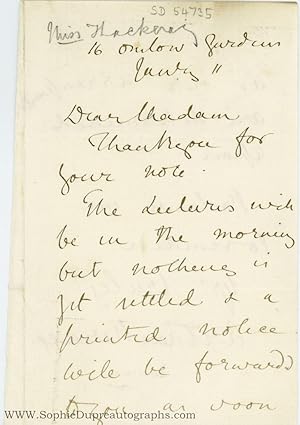 SD 54735
Miss Thackeray
16 Onslow Gardens
Janry 11
Dear Madam
Thank you for
your note.
The Lectures will
be in the morning
but nothing is
yet settled & a
printed notice
will be forwarded
to you as soon
www.SophieDupreautographs.com